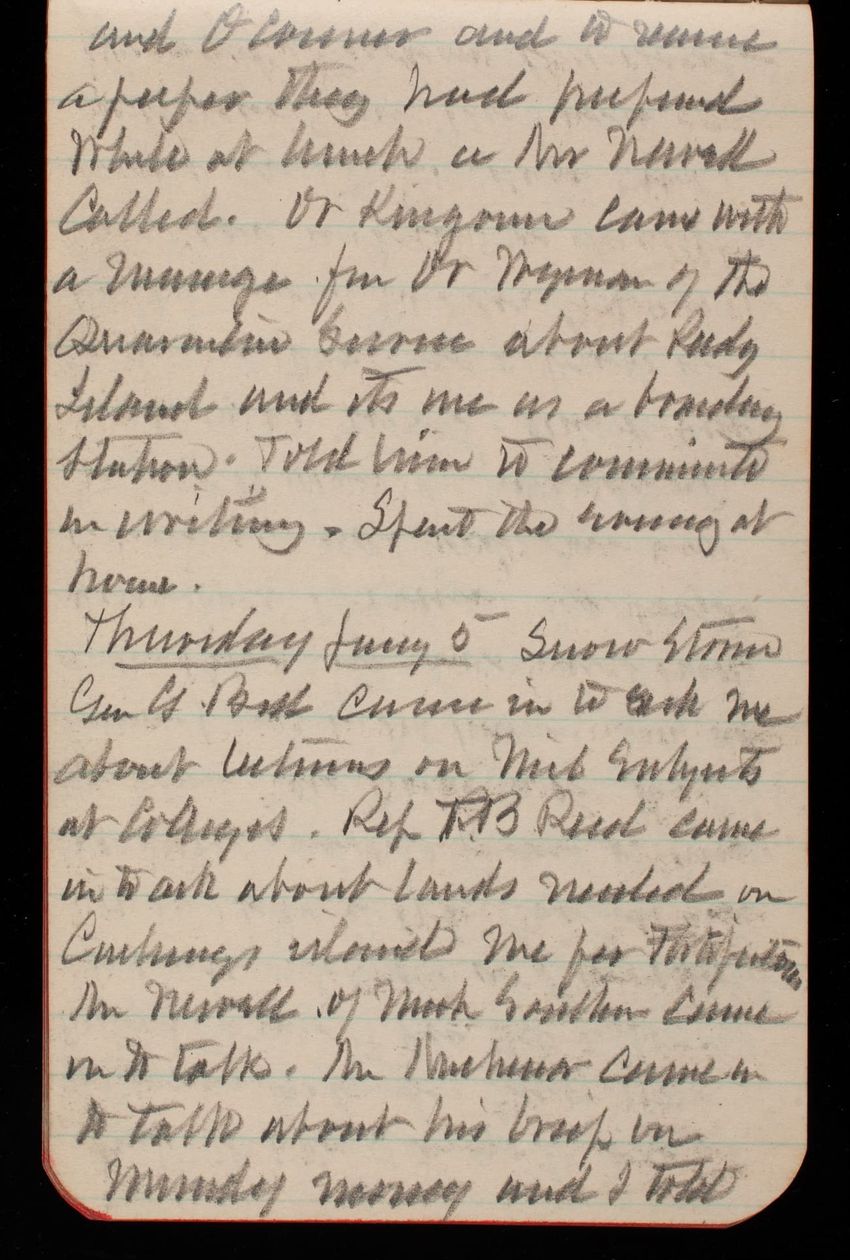 and O'Connor and to receive
a paper they had prepared
While at lunch a Mr Newell
Called. Dr Kingoun came with
a message for Dr Wyman of the
Quarantine Service about Reedy
Island and its use as a boarding
Station. Told him to communicate
in writing. Spent the evening at
home.
Thursday Jany 5 Snow Storm
Gen G Bell came in to ask me
about lectures on Mil Subjects
at Colleges. Rep TB Reed came
in to ask about lands needed on
Cushings island Me for Fortifications
Mr Newell of came
in to talk. Mr came in
to talk about his brief in
Monday morning and I told